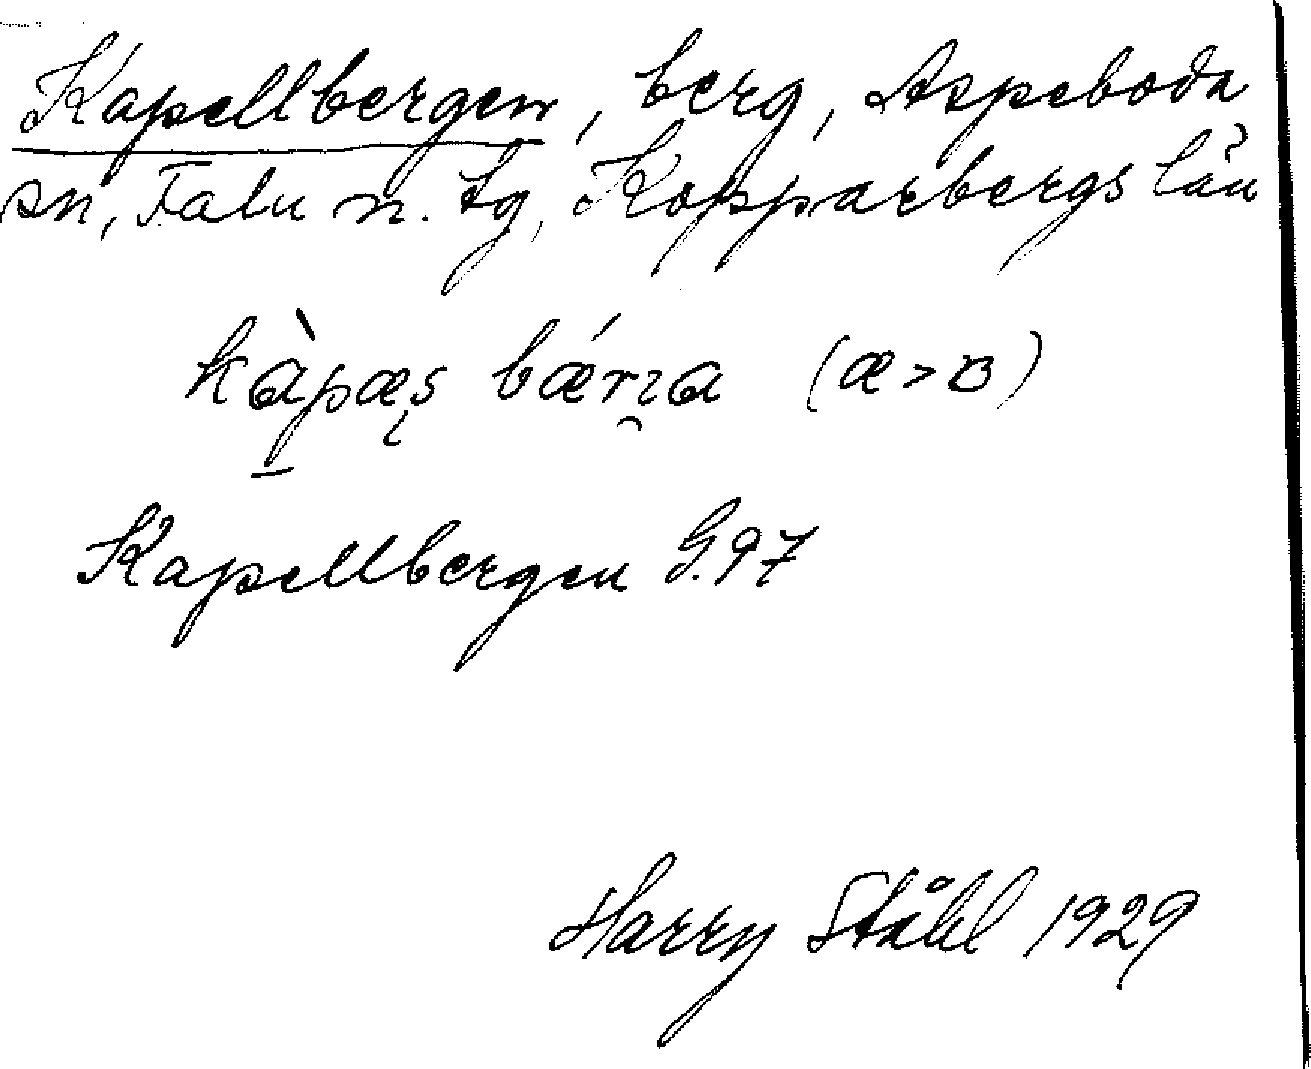 Kapellbergen, berg, Aspeboda
sn, Falu n. tg, Kopparbergs län
kàpæs bǽrıa (æ>ɞ)
Kapellbergen G.97
Harry Ståhl 1929